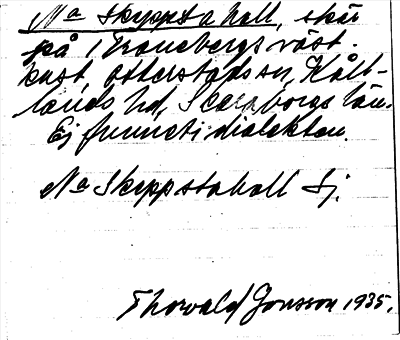 Na Skyppsta hall, skär
på Tranebergs väst-
kust, Otterstads sn, Kåll-
lands hd, Skaraborgs län.
Ej funnet i dialekten.
Na Skeppstahall Sj.
Thorvald Jonsson 1935.